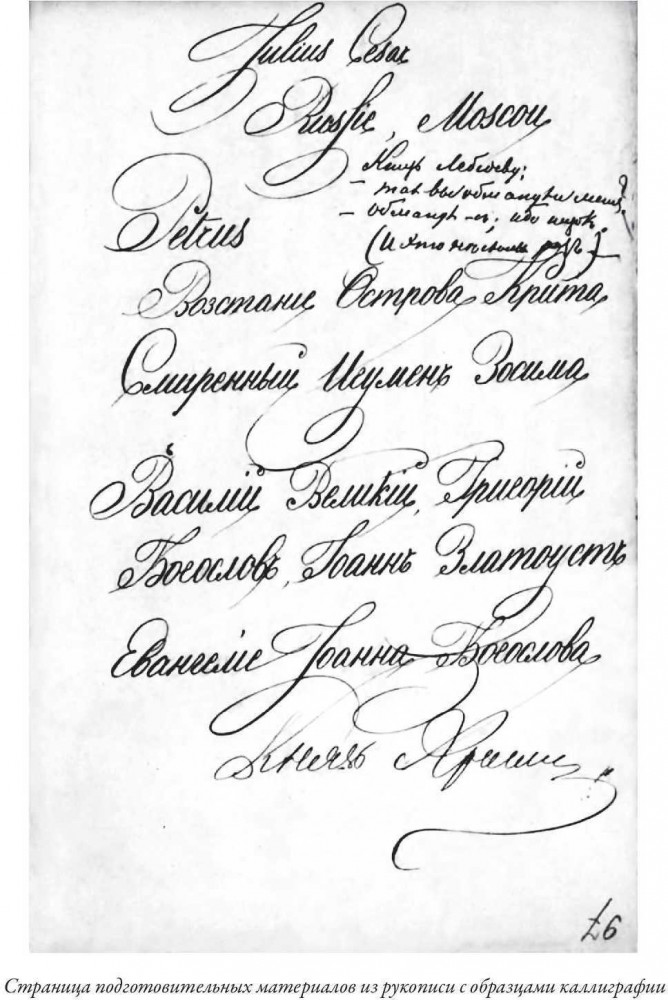 Julius Cesar
Russie, Moscou
Князь Лебедеву:
– такъ вы обманули меня?
– обманулъ-съ, ибо низокъ.
Petrus
Возстание Острова Крита
Смиренный Игуменъ Зосима
Василій Великій, Григорій
Богословъ, Іоаннъ Златоустъ
Евангеліе Іоанна Богослова
Князь
76
Страница подготовительных материалов из рукописи с образцами каллиграфии